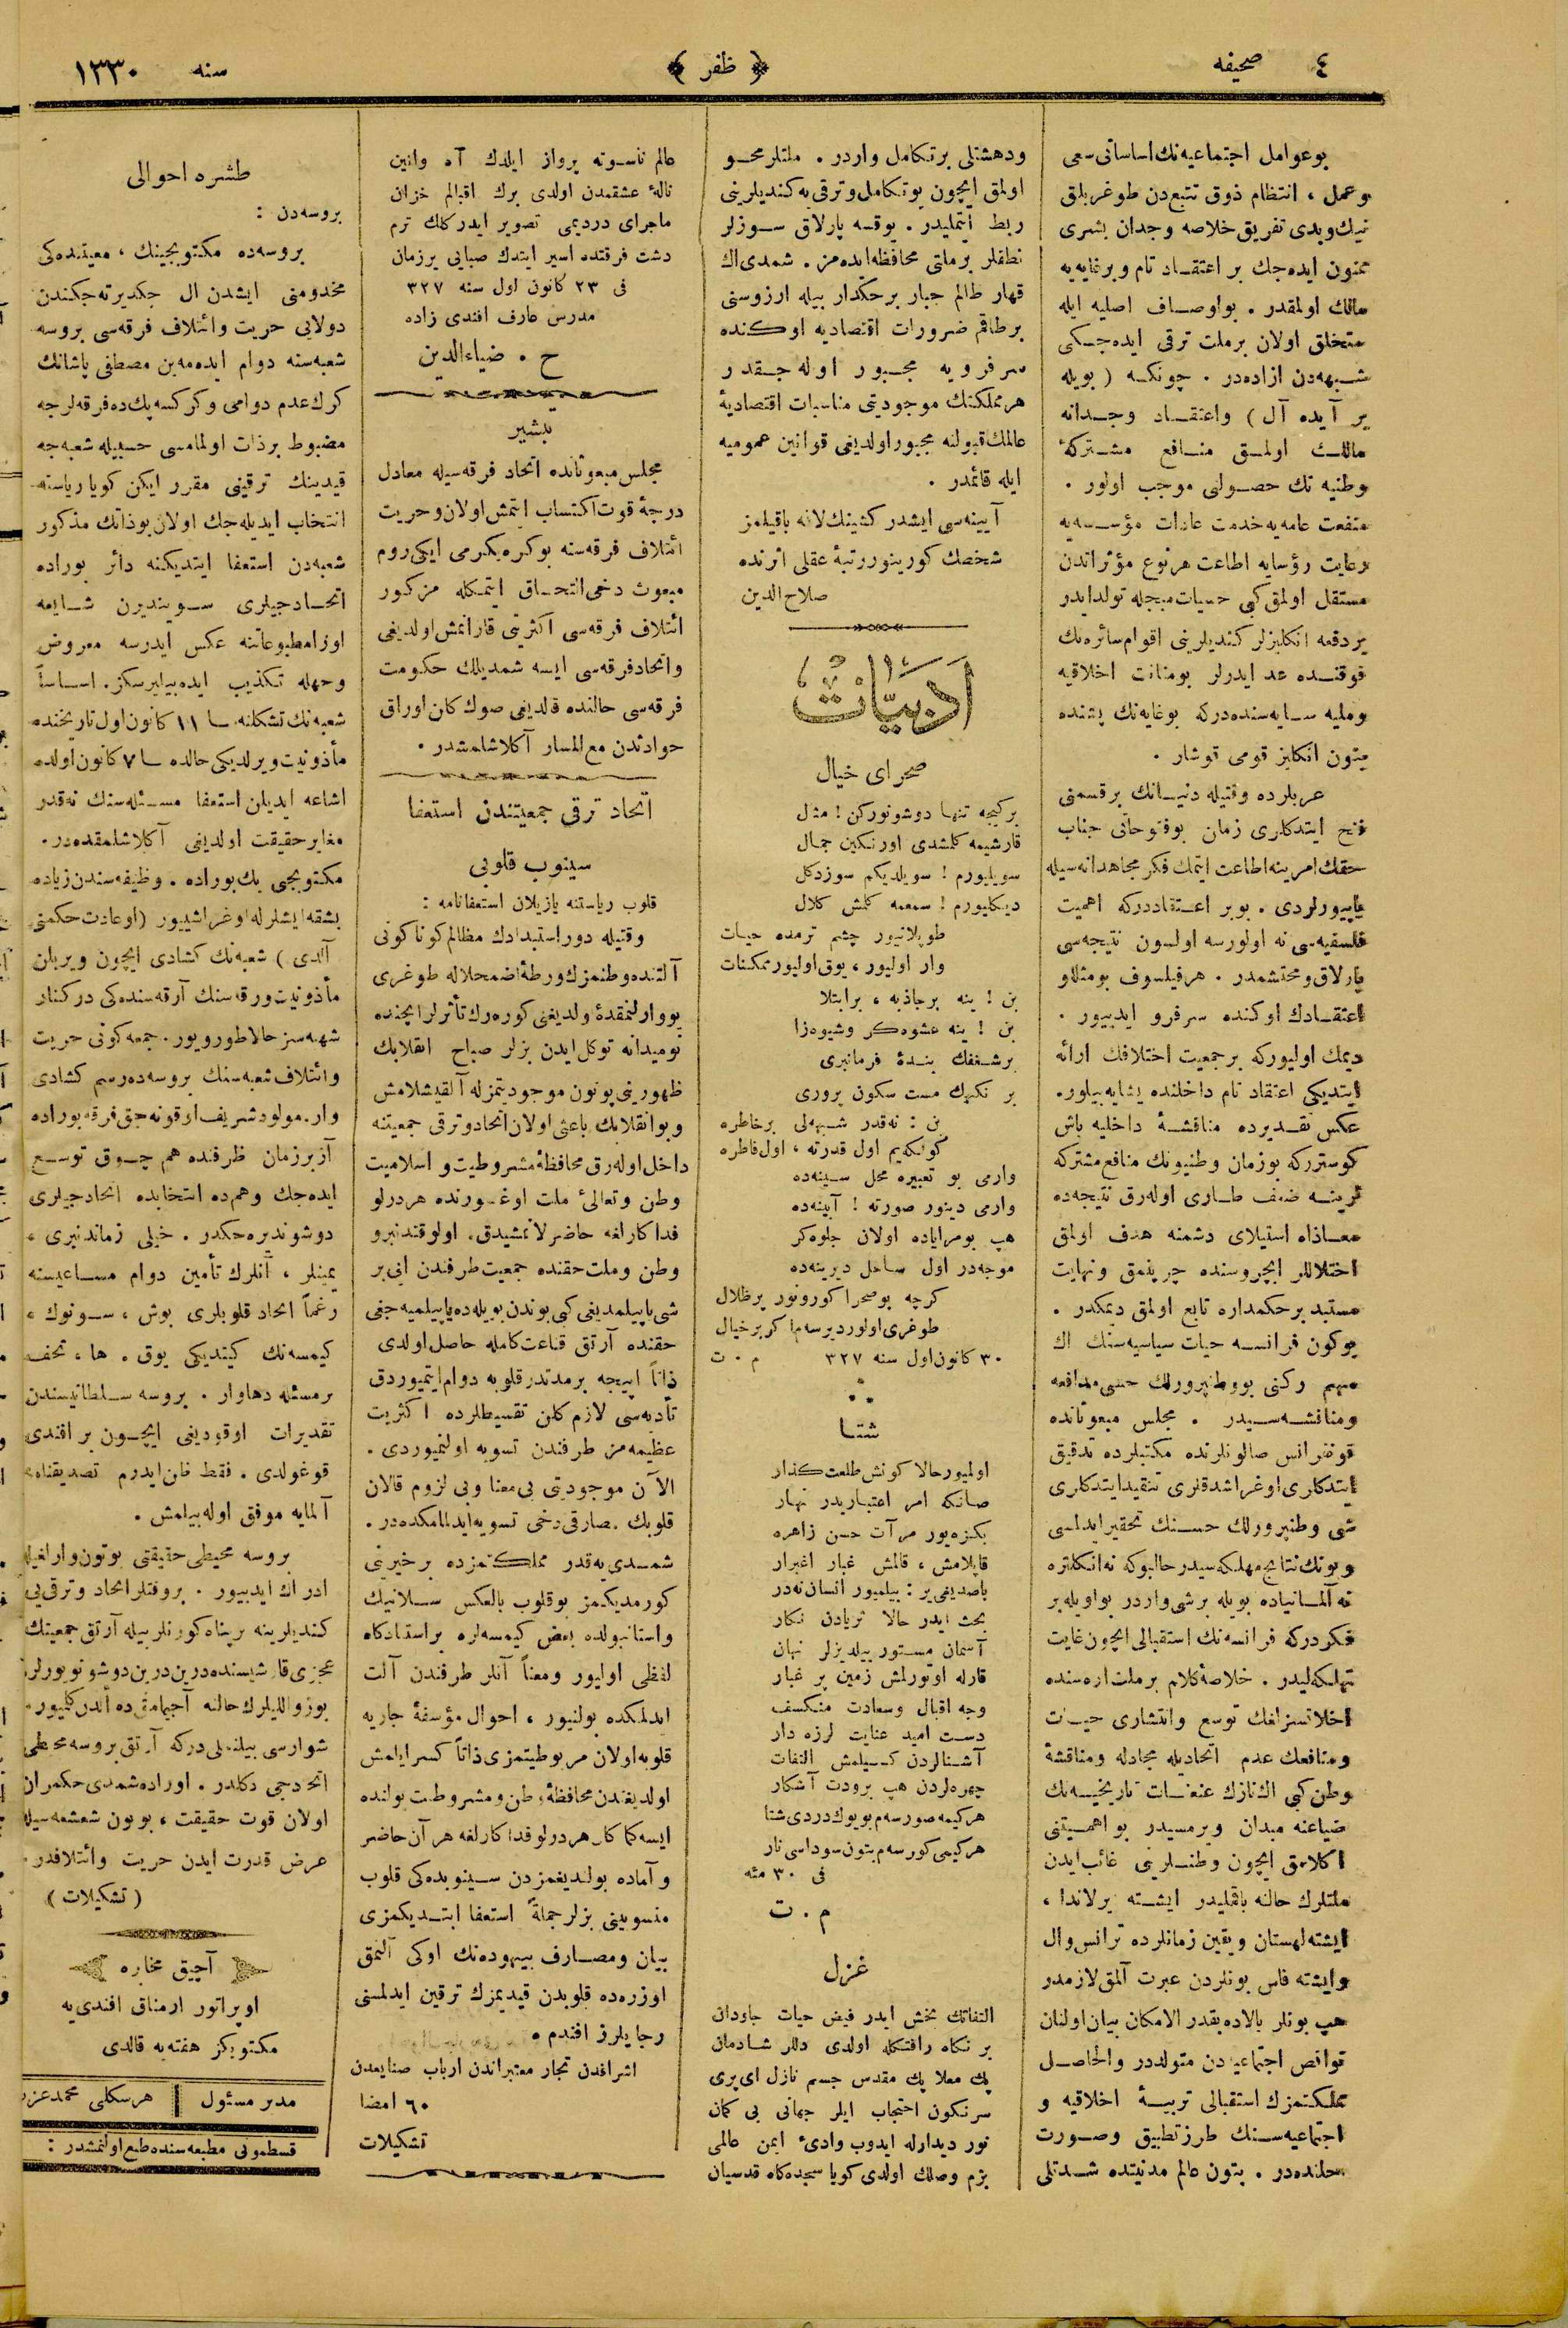 ٤ صحيفه
﴿ ظفر ﴾
سنه ١٣٣٠
بوعوامل اجتماعيه نك اساساتى سعى
وعمل ، انتظام ذوق تتبع دن طوغريلق
نيك وبدى تفريق خلاصه وجدان بشرى
ممنون ايده جك بر اعتقاد تام و برغايه يه
مالك اولمقدر . بواوصاف اصليه ايله
متخلق اولان برملت ترقى ايده جكى
شبهه دن ازاده در . چونكه ( بويله
بر آيده آل ) واعتقاد وجدانه
مالك اولمق منافع مشتركۀ
وطنيه نك حصولى موجب اولور .
منفعت عامه يه خدمت عادات مؤسسه يه
رعايت رؤسايه اطاعت هرنوع مؤثراتدن
مستقل اولمق كبى حسيات مبجله تولد ايدر
بر دفعه انكليزلر كنديلرينى اقوام سائره نك
فوقنده عد ايدرلر بومتانت اخلاقيه
وطيه سايه سنده دركه بوغايه نك پشنده
بتون انكليز قومى قوشار .
عربلرده وقتيله دنيانك برقسمنى
فتح ايتدكلرى زمان بوفتوحاتى جناب
حقك امرينه اطاعت ايتمك فكر مجاهدانه سيله
ياپيورلردى . بوبر اعتقاددركه اهميت
فلسفيه سى نه اولورسه اولسون نتيجه سى
پارلاق ومحتشمدر . هرفيلسوف بومثللو
اعتقادك اوكنده سرفرو ايدييور .
ديمك اوليوركه برجمعيت اختلافك ارائه
ايتديكى اعتقاد تام داخلنده يشايه بيلور.
عكس تقديرده مناقشۀ داخليه باش
كوستررکه بوزمان وطنيونك منافع مشتركه
لرينه ضعف طارى اوله رق نتيجه ده
معاذاه استيلاى دشمنه هدف اولمق
اختلاللر ايچروسنده چرپنمق ونهايت
مستبد برحكمداره تابع اولمق ديمكدر .
بوكون فرانسه حيات سياسيه سنك اك
مهم ركنى بووطنپرورلك حسى مدافعه
ومناقشه سيدر . مجلس مبعوثانده
قونفرانس صالونلرنده مكتبلرده تدقيق
ايتدكلرى اوغراشدقلرى تنقيد ايتدكلرى
شى وطنپرورلك حسنك تحقير ايدلمسى
وبونك نتايج مهلكه سيدر حالبوكه نه انكلتره
نه آلمانياده بويله برشى واردر بو اويله بر
فكردركه فرانسه نك استقبالى ايچون غايت
تهلكه ليدر . خلاصۀ كلام برملت اره سنده
اخلاقسزلغك توسع وانتشارى حيات
ومنافعك عدم اتحاديله مجادله ومناقشۀ
وطن كبى اك نازك عنعنات تاريخيه نك
ضياعنه ميدان ويرمسيدر بو اهميتنى
اكلامق ايچون وطنلرينى غائب ايدن
ملتلرك حالنه باقليدر ايشته ايرلاندا ،
ايشته لهستان ويقين زمانلرده ترانس وال
وايشته فاس بونلردن عبرت آلمق لازمدر
هپ بونلر بالاده بقدر الامكان بيان اولنان
نواقص اجتماعيه دن متولددر والحاصل
مملكتمزك استقبالى تربيۀ اخلاقيه و
اجتماعيه سنك طرز تطبيق وصورت
حلنده در . بتون عالم مدنيتده شدتلى
ودهشتلى برتكامل واردر . ملتلر محو
اولمق ايچون بوتكامل وترقى به كنديلرينى
ربط ايتمليدر . يوقسه پارلاق سوزلر
نطقلر برملتى محافظه ايده مز . شمدى اك
قهار ظالم جبار برحكمدار بيله ارزوسنى
برطاقم ضرورات اقتصاديه اوكنده
سرفرويه مجبور اوله جقدر
هر مملكتك موجوديتى مناسبات اقتصاديۀ
عالمك قبولنه مجبور اولديغى قوانين عموميه
ايله قائمدر .
آيينه سى ايشدر كشينك لافه باقيلمز
شخصك كورينور رتبۀ عقلى اثرنده
صلاح الدين
ادبيات
صحراى خيال
بركيجه تنها دوشونوركن ! مثل
قارشيمه كلمشدى اورنكين جمال
سويليورم ! سويلديكم سوزدكل
ديكليورم ! سمعمه كلمش كلال
طوپلانيور چشم ترمده حيات
وار اوليور ، يوق اوليور ممكنات
بن ! ينه برجاذبه ، برابتلا
بن ! ينه عشوه كر وشيوه زا
برشغفك بندۀ فرمانبرى
بر نكهك مست سكون پرورى
بن : نه قدر شبهه لى برخاطره
كونكه يم اول قدرته ، اول فاطره
وارمى بو تعبيره محل سينه ده
وارمى دينور صورته ! آيينه ده
هپ بومراياده اولان جلوه كر
موجه در اول ساحل ديرينه ده
كرچه بوصحرا كورونور پرظلال
طوغرى اولور ديرسه م اكر برخيال
٣٠ كانون اول سنه ٣٢٧ م . ت
شتا
اولميور حالا كونش طلعت كذار
صانكه امر اعتباريدر نهار
بكزه يور مرآت حسن زاهره
قاپلامش ، قالمش غبار اغبرار
باصديغى ير : بيلميور انسان نه در
بحث ايدر حالا ثريادن نكار
آسمان مستور ييلديزلر نهان
قارله اوتورلمش زمين پر غبار
وجه اقبال وسعادت منكسف
دست اميد عنايت لرزه دار
آشنالردن كسيلمش التفات
چهره لردن هپ برودت آشكار
هركيمه صورسه م بويوك دردى شتا
هركيمى كورسه م بتون سوداسى نار
فى ٣٠ منه
م . ت
غزل
التفاتك بخش ايدر فيض حيات جاودان
بر نكاه رأفتكله اولدى دللر شادمان
پك معلا پك مقدس جسم نازل اى پرى
سرنكون احتجاب ايلر جهانى بى كمان
نور ديدارله ايدوب وادئ ايمن عالمى
بزم وصلك اولدى كويا سجده كاه قدسيان
عالم ناسوته پرواز ايلدك آه وانين
نالۀ عشقمدن اولدى برك اقبالم خزان
ماجراى درديمى تصوير ايدركلك ترم
دشت فرقتده اسير ايتدك ضيايى برزمان
فى ٢٣ كانون اول سنه ٣٢٧
مدرس عارف افندى زاده
ح . ضياءالدين
تبشير
مجلس مبعوثانده اتحاد فرقه سيله معادل
درجۀ قوت اكتساب ايتمش اولان وحريت
ائتلاف فرقه سنه بوكره يكرمى ايكى روم
مبعوث دخى التحاق ايتمكله مزكور
ائتلاف فرقه سى اكثريتى قازانمش اولديغى
واتحاد فرقه سى ايسه شمديلك حكومت
فرقه سى حالنده قالديغى صوك كان اوراق
حوادثدن مع المسار آكلاشلمشدر .
اتحاد ترقى جمعيتندن استعفا
سينوب قلوبى
قلوب رياستنه يازيلان استعفانامه :
وقتيله دور استبدادك مظالم كوناكونى
آلتنده وطنمزك ورطۀ اضمحلاله طوغرى
يووارلنمقدۀ ولديغنى كوره رك تأثرلر ايچنده
نوميدانه توكل ايدن بزلر صباح انقلابك
ظهورينى بوتون موجوديتمزله آلقيشلامش
وبوانقلابك باعثى اولان اتحاد وترقى جمعيتنه
داخل اوله رق محافظۀ مشروطيت واسلاميت
وطن وتعالئ ملت اوغورنده هردرلو
فداكارلغه حاضرلانمشيدق . اولوقتدنبرو
وطن وملت حقنده جمعيت طرفندن ايى بر
شى ياپيلمديغى كبى بوندن بويله ده ياپيلميه جغى
حقنده آرتق قناعت كامله حاصل اولدى
ذاتاً اپيجه برمدتدر قلوبه دوام ايتميوردق
تأديه سى لازم كلن تقسيطلرده اكثريت
عظيمه مز طرفندن تسويه اولنميوردى .
الآن موجوديتى بى معنا وبى لزوم قالان
قلوبك مصارفى دخى تسويه ايدلمامكده در .
شمدى يه قدر مملكتمزده برخيرينى
كورمديكيمز بوقلوب بالعكس سلانيك
واستانبولده بعض كيمسه لره براستنادكاه
لفظى اوليور ومعناً آنلر طرفندن آلت
ايدلمكده بولنيور ، احوال مؤسفۀ جاريه
قلوبه اولان مربوطيتمزى ذاتاً كسر ايلمش
اولديغندن محافظۀ وطن ومشروطيت يولنده
ايسه كماكان هردرلو فداكارلغه هر آن حاضر
وآماده بولنديغمزدن سينوبده كى قلوب
منسوبينى بزلر جملةً استعفا ايتديكمزى
بيان ومصارف بيهوده نك اوكى آلنمق
اوزره ده قلوبدن قيديمزك ترقين ايدلمسنى
رجا يلرز افندم .
اشرافدن تجار معتبراندن ارباب صنايعدن
٦٠ امضا
تشكيلات
طشره احوالى
بروسه دن :
بروسه ده مكتوبجينك ، معيتنده كى
مخدومنى ايشدن ال چكديرته جكندن
دولايى حريت وائتلاف فرقه سى بروسه
شعبه سنه دوام ايده مه ين مصطفى پاشانك
كرك عدم دوامى وكركسه پك ده فرقه لرجه
مضبوط برذات اولمامسى حسبيله شعبه جه
قيدينك ترقينى مقرر ايكن كويا رياسته
انتخاب ايديله جك اولان بوذاتك مذكور
شعبه دن استعفا ايتديكنه دائر بوراده
اتحادجيلرى سوينديرن شايعه
اورا مطبوعاتنه عكس ايدرسه معروض
وجهله تكذيب ايده بيليرسكز . اساساً
شعبه نك تشكلنه ١١ كانون اول تاريخنده
مأذونيت ويرلديكى حالده ٧ كانون اولده
اشاعه ايديلن استعفا مسئله سنك نه قدر
مغاير حقيقت اولديغى آكلاشلمقده در .
مكتوبجى بك بوراده . وظيفه سندن زياده
بشقه ايشلرله اوغراشييور (اوعادت حكمنى
آلدى ) شعبه نك كشادى ايچون ويريلن
مأذونيت ورقه سنك آرقه سنده كى دركنار
شبهه سز حالا طورويور . جمعه كونى حريت
وائتلاف شعبه سنك بروسه ده رسم كشادى
وار . مولود شريف اوقونه جق فرقه بوراده
آز برزمان ظرفنده هم چوق توسع
ايده جك وهم ده انتخابده اتحادجيلرى
دوشونديره جكدر . خيلى زماندنبرى ،
يمينلر ، آنلرك تأمين دوام مساعيسنه
رغماً اتحاد قلوبلرى بوش ، سونوك ،
كيمسه نك كيتديكى يوق . ها ، تحف
برمسئله دهاوار . بروسه سلطانيسندن
تقديرات اوقوديغى ايچون بر افندى
قوغولدى . فقط ظن ايدرم تصديقنامه
آلمايه موفق اوله بيلمش .
بروسه محيطى حقيقتى بوتون وارلغيله
ادراك ايدييور . بروقتلر اتحاد وترقى يى
كنديلرينه پناه كورنلر بيله آرتق جمعيتك
عجزى قارشيسنده درين درين دوشونويورلر
بوزواللیلرك حالنه آجيمامق ده ألدن كلميور .
شوارسى بيلنملى دركه آرتق بروسه محيطى
اتحادجى دكلدر . اوراده شمدى حكمران
اولان قوت حقيقت ، بوتون شعشعه سيله
عرض قدرت ايدن حريت وائتلافدر .
( تشكيلات )
آچيق مخابره
اوپراتور ارمناق افندى يه
مكتوبكز هفته يه قالدى
مدير مسئول هرسكلى محمد عزت
قسطمونى مطبعه سنده طبع اولنمشدر :